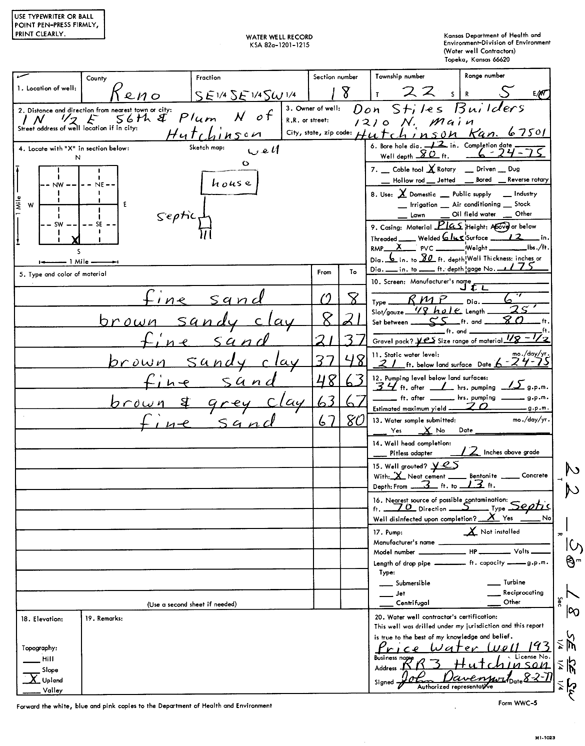 USE TYPEWRITER OR BALL
POINT PEN-PRESS FIRMLY,
PRINT CLEARLY.
WATER WELL RECORD
KSA 82a-1201-1215
Kansas Department of Health and
Environment-Division of Environment
(Water well Contractors)
Topeka, Kansas 66620
1. Location of well: County Reno Fraction SE 1/4 SE 1/4 SW 1/4 Section number 18 Township number T 22 S Range number R 5 E/W
2. Distance and direction from nearest town or city: 1 N 1/2 E 56th & Plum N of
Street address of well location if in city: Hutchinson
3. Owner of well: Don Stiles Builders
R.R. or street: 1210 N. Main
City, state, zip code: Hutchinson Kan. 67501
4. Locate with "X" in section below:
N
NW NE
W E
SW SE
X
S
1 Mile
1 Mile
Sketch map:
well
O
house
septic
6. Bore hole dia. 12 in. Completion date
Well depth 80 ft. 6-24-75
7. Cable tool X Rotary Driven Dug
Hollow rod Jetted Bored Reverse rotary
8. Use: X Domestic Public supply Industry
Irrigation Air conditioning Stock
Lawn Oil field water Other
9. Casing: Material Plas Height: Above or below
Threaded Welded Glue Surface 12 in.
RMP X PVC Weight lbs./ft.
Dia. 6 in. to 80 ft. depth Wall Thickness: inches or
Dia. in. to ft. depth gage No. .175
5. Type and color of material From To
fine sand 0 8
brown sandy clay 8 21
fine sand 21 37
brown sandy clay 37 48
fine sand 48 63
brown & grey clay 63 67
fine sand 67 80
(Use a second sheet if needed)
10. Screen: Manufacturer's name
Type RMP Dia. 6"
Slot/gauze 1/8 hole Length 25'
Set between 55 ft. and 80 ft.
ft. and ft.
Gravel pack? yes Size range of material 1/8-1/2
11. Static water level: mo./day/yr.
21 ft. below land surface Date 6-24-75
12. Pumping level below land surfaces:
34 ft. after 1 hrs. pumping 15 g.p.m.
ft. after hrs. pumping g.p.m.
Estimated maximum yield 20 g.p.m.
13. Water sample submitted: mo./day/yr.
Yes X No Date
14. Well head completion:
Pitless adapter 12 Inches above grade
15. Well grouted? yes
With: X Neat cement Bentonite Concrete
Depth: From 3 ft. to 13 ft.
16. Nearest source of possible contamination:
ft. 70 Direction S Type Septic
Well disinfected upon completion? X Yes No
17. Pump: X Not installed
Manufacturer's name
Model number HP Volts
Length of drop pipe ft. capacity g.p.m.
Type:
Submersible Turbine
Jet Reciprocating
Centrifugal Other
18. Elevation:
Topography:
Hill
Slope
X Upland
Valley
19. Remarks:
20. Water well contractor's certification:
This well was drilled under my jurisdiction and this report
is true to the best of my knowledge and belief.
Price Water Well 193
Business name License No.
Address RR3 Hutchinson
Signed John Davenport Date
Authorized representative
Forward the white, blue and pink copies to the Department of Health and Environment
Form WWC-5
T 22 - R 5 E
Sec 18
SE SE SW
1/4 1/4 1/4